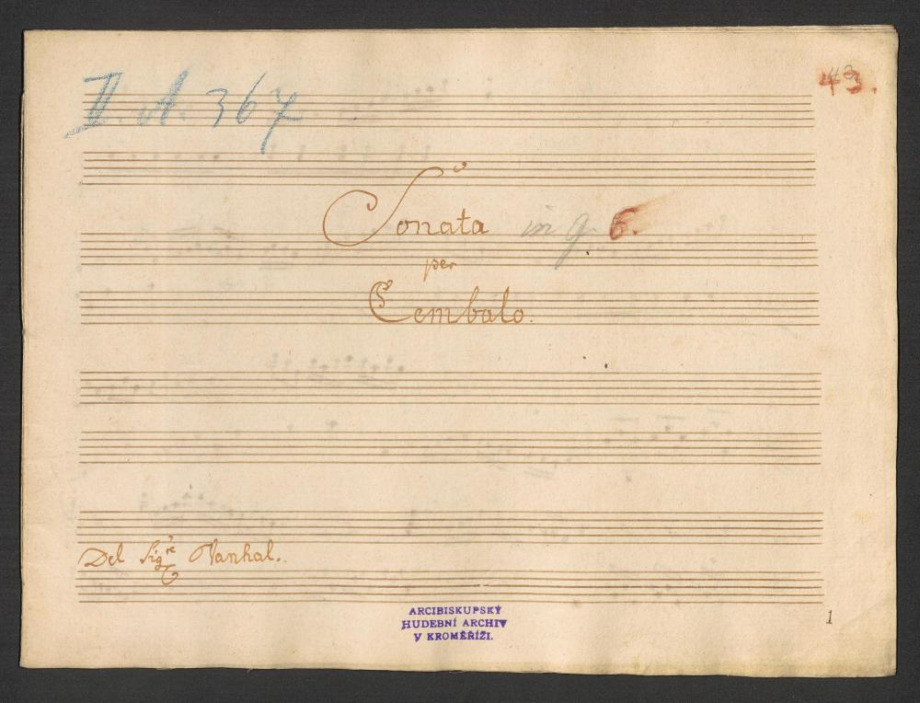 II. A. 367
43.
Sonata in g 6.
per
Cembalo.
Del Sig:re Vanhal.
ARCIBISKUPSKÝ
HUDEBNÍ ARCHIV
V KROMĚŘÍŽI.
1